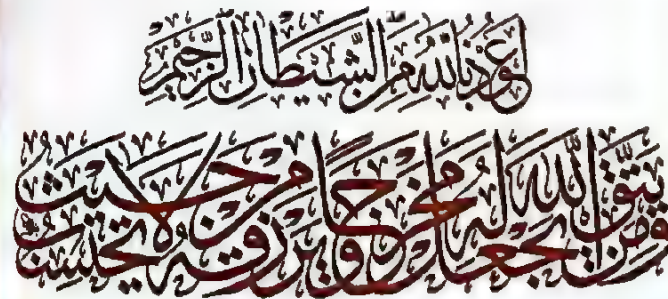 اعوذ بالله من الشيطان الرجيم
ومن يتق الله يجعل له مخرجا ويرزقه من حيث لا يحتسب